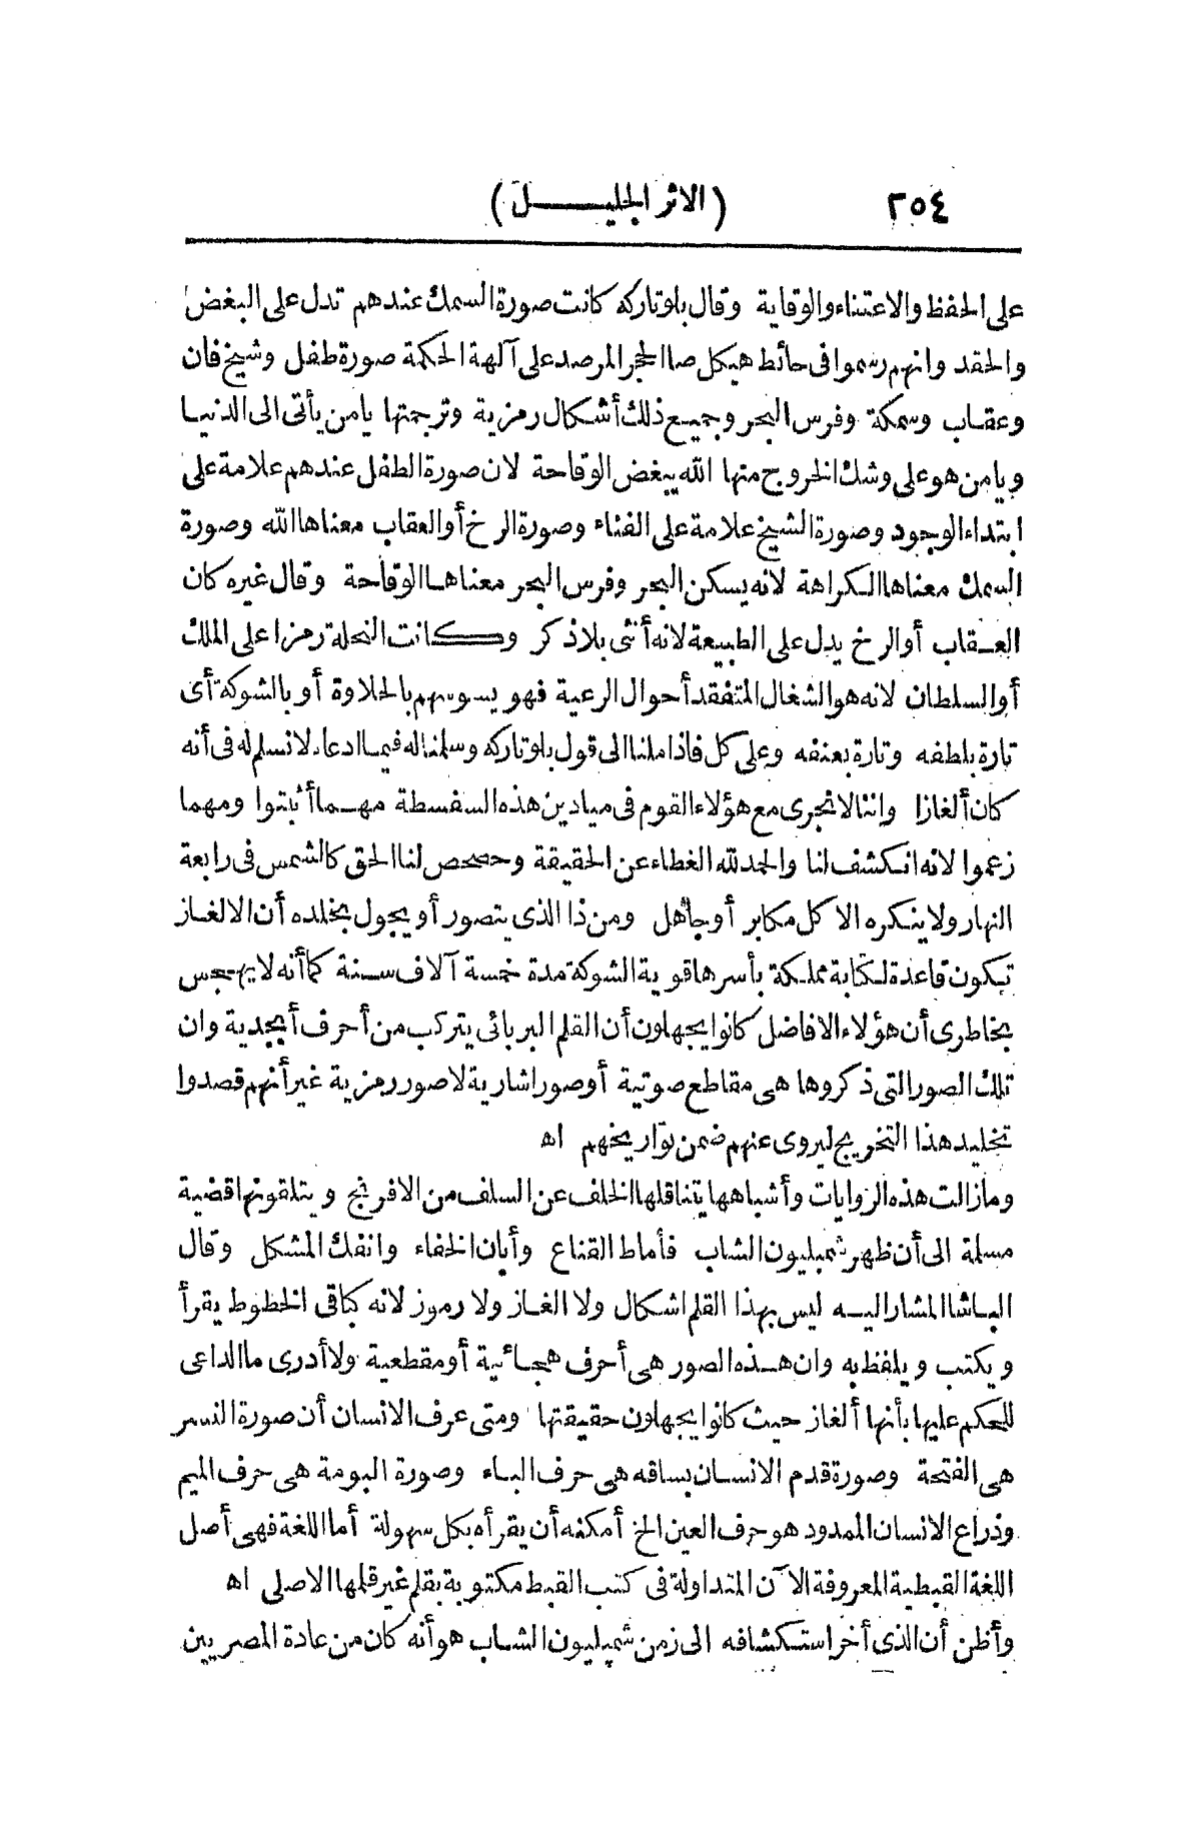 ٢٥٤ (الاثر الجليــــل)
على الحفظ والاعتناء والوقاية وقال بلوتاركه كانت صورة السمك عندهم تدل على البغض
والحقد وانهم رسموا فى حائط هيكل صا الحجر المرصد على آلهة الحكمة صورة طفل وشيخ فان
وعقاب وسمكة وفرس البحر وجميع ذلك أشكال رمزية وترجمتها يا من يأتى الى الدنيا
ويا من هو على وشك الخروج منها الله يبغض الوقاحة لان صورة الطفل عندهم علامة على
ابتداء الوجود وصورة الشيخ علامة على الفناء وصورة الرخ أو العقاب معناها الله وصورة
السمك معناها الكراهة لانه يسكن البحر وفرس البحر معناها الوقاحة وقال غيره كان
العقاب أو الرخ يدل على الطبيعة لانه أنثى بلا ذكر وكانت النحلة رمزا على الملك
أو السلطان لانه هو الشغال المتفقد أحوال الرعية فهو يسوسهم بالحلاوة أو بالشوكة أى
تارة بلطفه وتارة بعنفه وعلى كل فاذا ملنا الى قول بلوتاركه وسلمنا له فيما ادعاه لا نسلم له فى أنه
كان ألغازا واننا لا نجرى مع هؤلاء القوم فى ميادين هذه السفسطة مهما أثبتوا ومهما
زعموا لانه انكشف لنا والحمد لله الغطاء عن الحقيقة وحصحص لنا الحق كالشمس فى رابعة
النهار ولا ينكره الا كل مكابر أو جاهل ومن ذا الذى يتصور أو يجول بخلده أن الالغاز
تكون قاعدة لكتابة مملكة بأسرها قوية الشوكة مدة خمسة آلاف سنة كما أنه لا يهجس
بخاطرى أن هؤلاء الافاضل كانوا يجهلون أن القلم البربائى يتركب من أحرف أبجدية وان
تلك الصور التى ذكروها هى مقاطع صوتية أو صور اشارية لا صور رمزية غير أنهم قصدوا
تخليد هذا التخريج ليروى عنهم ضمن تواريخهم اه
وما زالت هذه الروايات وأشباهها يتناقلها الخلف عن السلف من الافرنج ويتلقونها قضية
مسلمة الى أن ظهر شمبليون الشاب فأماط القناع وأبان الخفاء وانفك المشكل وقال
الباشا المشار اليه ليس بهذا القلم اشكال ولا الغاز ولا رموز لانه كباقى الخطوط يقرأ
ويكتب ويلفظ به وان هذه الصور هى أحرف هجائية أو مقطعية ولا أدرى ما الداعى
للحكم عليها بأنها ألغاز حيث كانوا يجهلون حقيقتها ومتى عرف الانسان أن صورة النسر
هى الفتحة وصورة قدم الانسان بساقه هى حرف الباء وصورة البومة هى حرف الميم
وذراع الانسان الممدود هو حرف العين الخ أمكنه أن يقرأه بكل سهولة أما اللغة فهى أصل
اللغة القبطية المعروفة الآن المتداولة فى كتب القبط مكتوبة بقلم غير قلمها الاصلى اه
وأظن أن الذى أخر استكشافه الى زمن شمبليون الشاب هو أنه كان من عادة المصريين